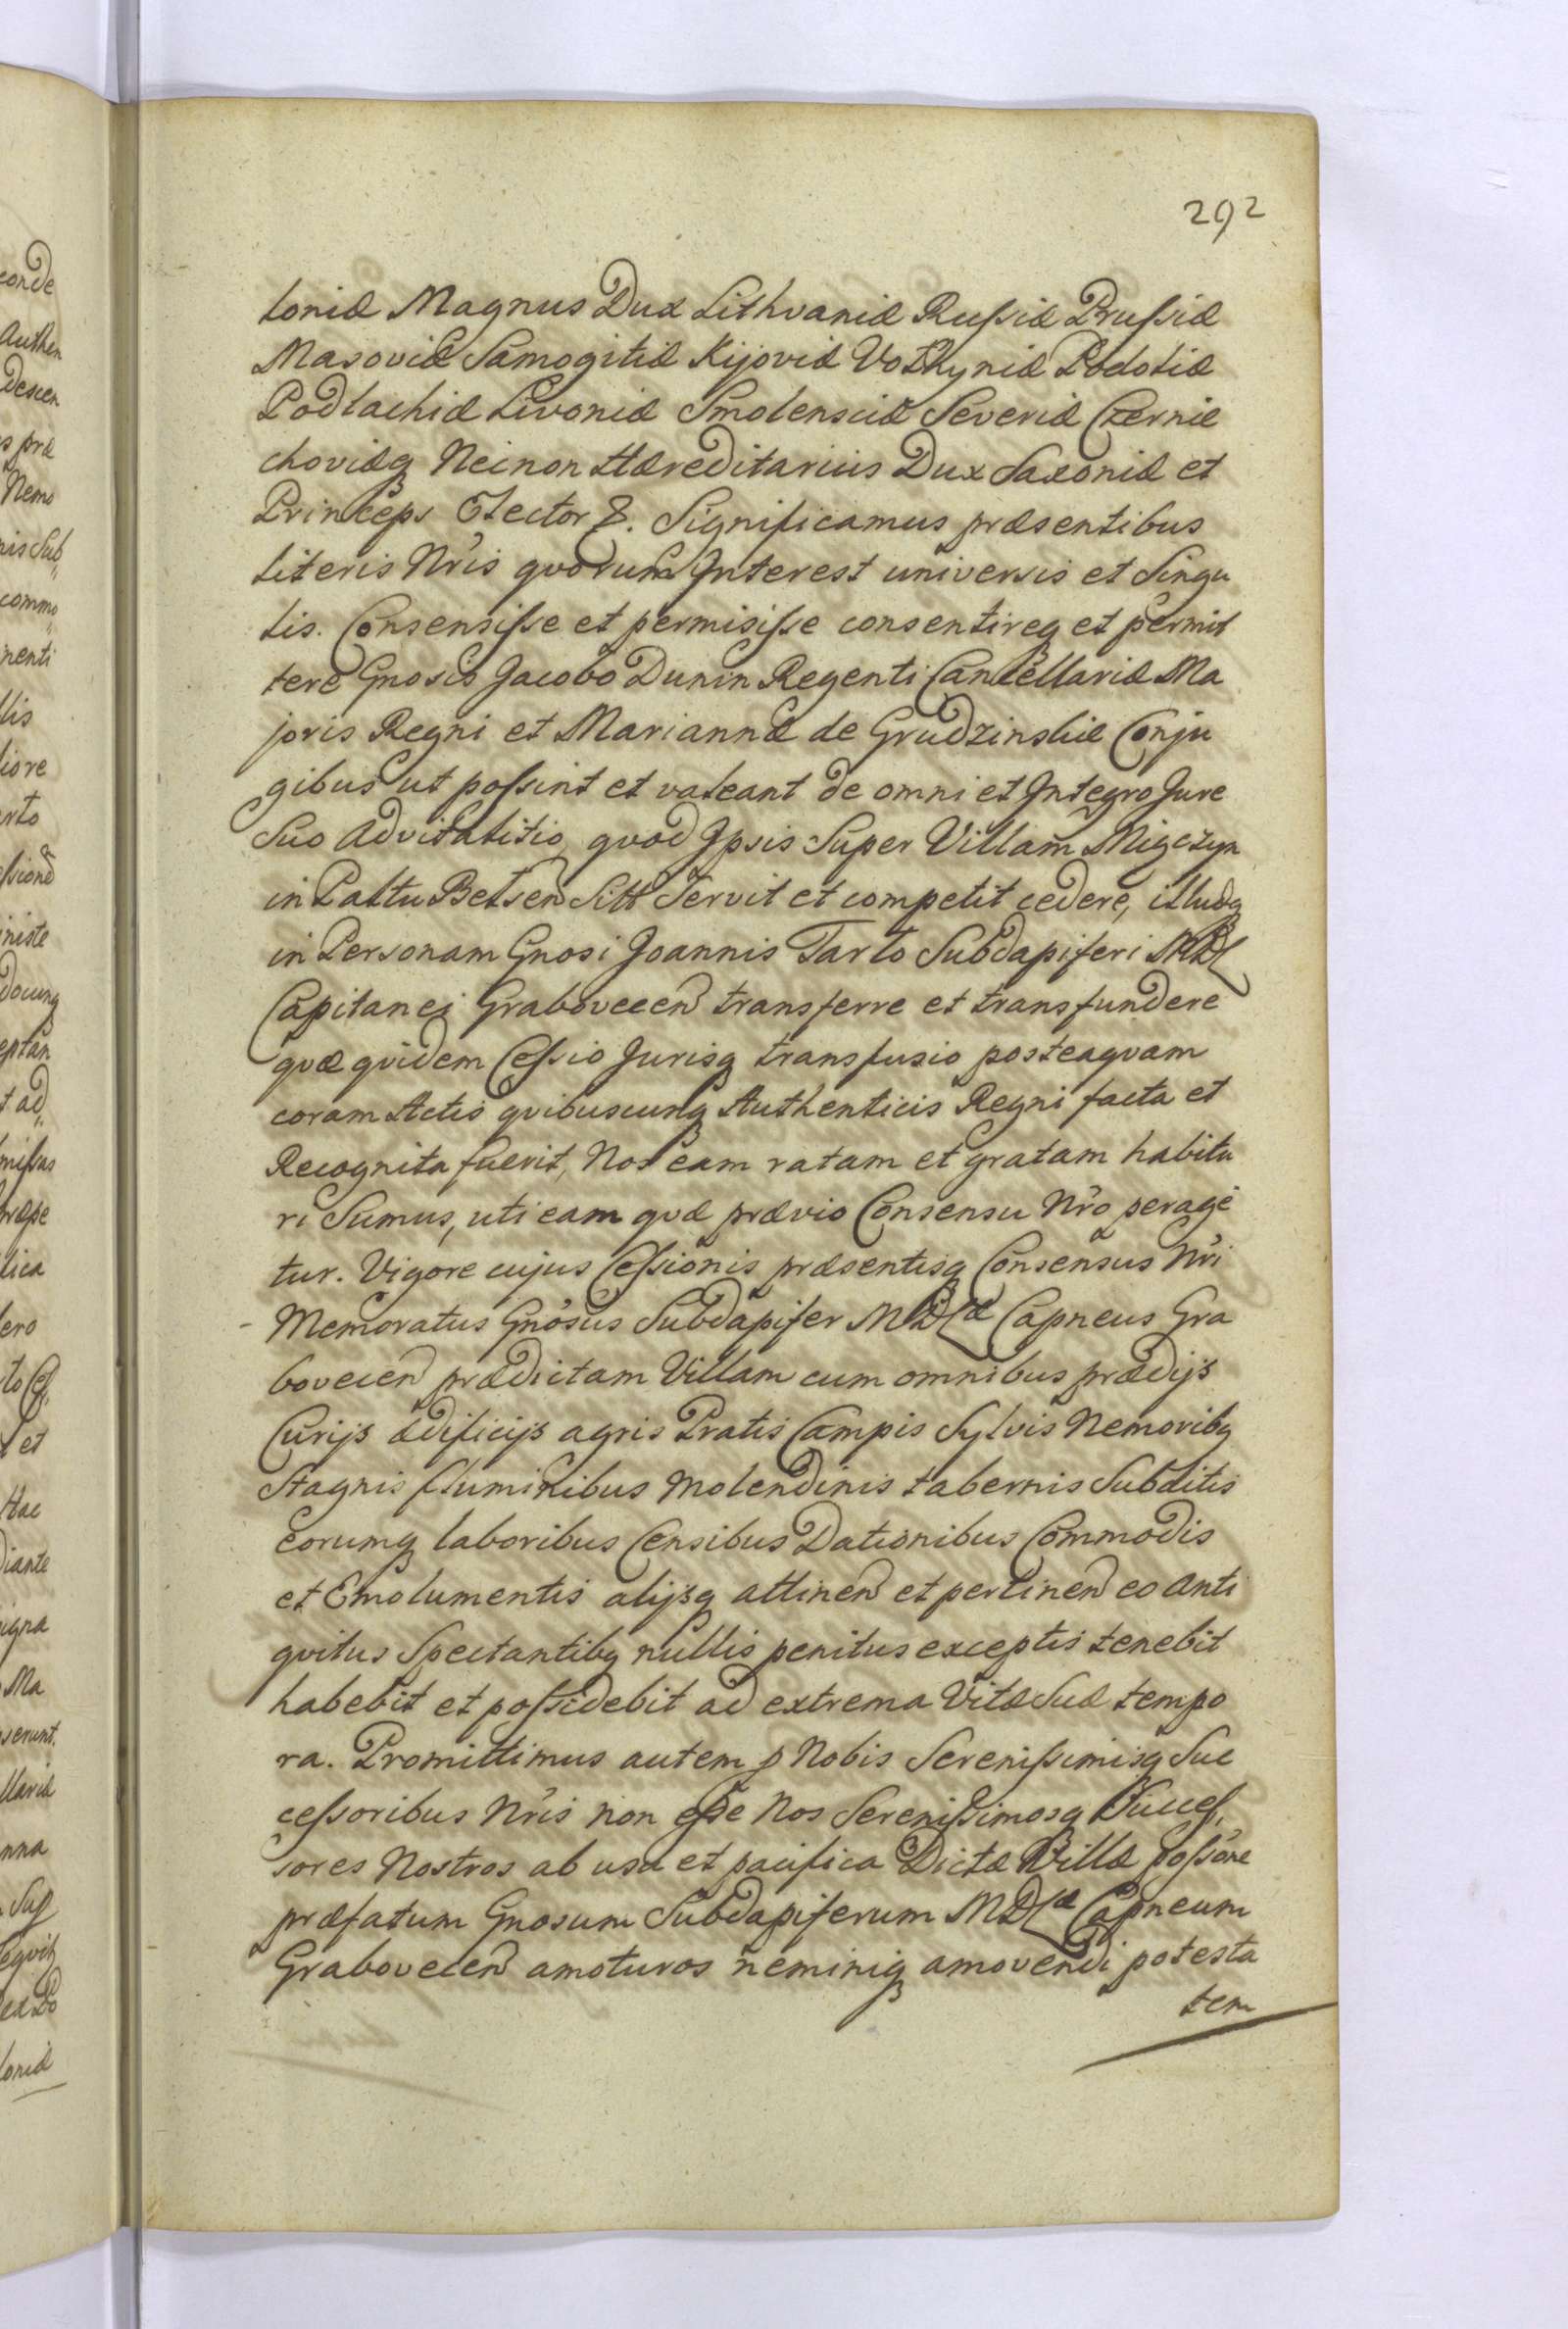 292
loniæ Magnus Dux Lithvaniæ Rußiæ Prußiæ
Masoviæ Samogitiæ Kijoviæ Volhyniæ Podoliæ
Podlachiæ Livoniæ Smolensciæ Severiæ Czernie
choviæq Necnon Hæreditarius Dux Saxoniæ et
Princeps Elector &. Significamus præsentibus
literis Nris qvorum Interest universis et Singu
lis. Consensiße et permisiße consentireq et permit
tere Gnosis Jacobo Dunin Regenti Cancellariæ Ma
joris Regni et Mariannæ de Grudzinskie Conju
gibus ut poßint et valeant de omni et Integro Jure
Suo Advitalitio, qvod Ipsis Super Villam Migczyn
in Palttu Belsen Sitt Servit et competit cedere, illudq
in Personam Gnosi Joannis Tarlo Subdapiferi MDL
Capitanei Grabovecen transferre et transfundere
qvæ qvidem Ceßio Jurisq transfusio posteaqvam
coram Actis qvibuscunq Authenticis Regni facta et
Recognita fuerit, Nos eam ratam et gratam habitu
ri Sumus, uti eam qvæ prævio Consensu Nro perage
tur. Vigore cujus Ceßionis præsentisq Consensus Nri
Memoratus Gnosus Subdapifer MDLæ Capneus Gra
bovecen prædictam Villam cum omnibus prædijs
Curijs ædificijs agris Pratis Campis Sylvis Nemoribq
Stagnis fluminibus Molendinis tabernis Subditis
eorumq laboribus Censibus Dationibus Commodis
et Emolumentis alijsq attinen et pertinen eo Anti
qvitus Spectantibq nullis penitus exceptis tenebit
habebit et poßidebit ad extrema Vitæ Suæ tempo
ra. Promittimus autem p Nobis Serenißimisq Suc
ceßoribus Nris non eße Nos Serenißimosq Succeß,
sores Nostros ab usu et pacifica Dictæ Villæ poßone
præfatum Gnosum Subdapiferum MDLæ Capneum
Grabovecen amoturos neminiq amovendi potesta
tem